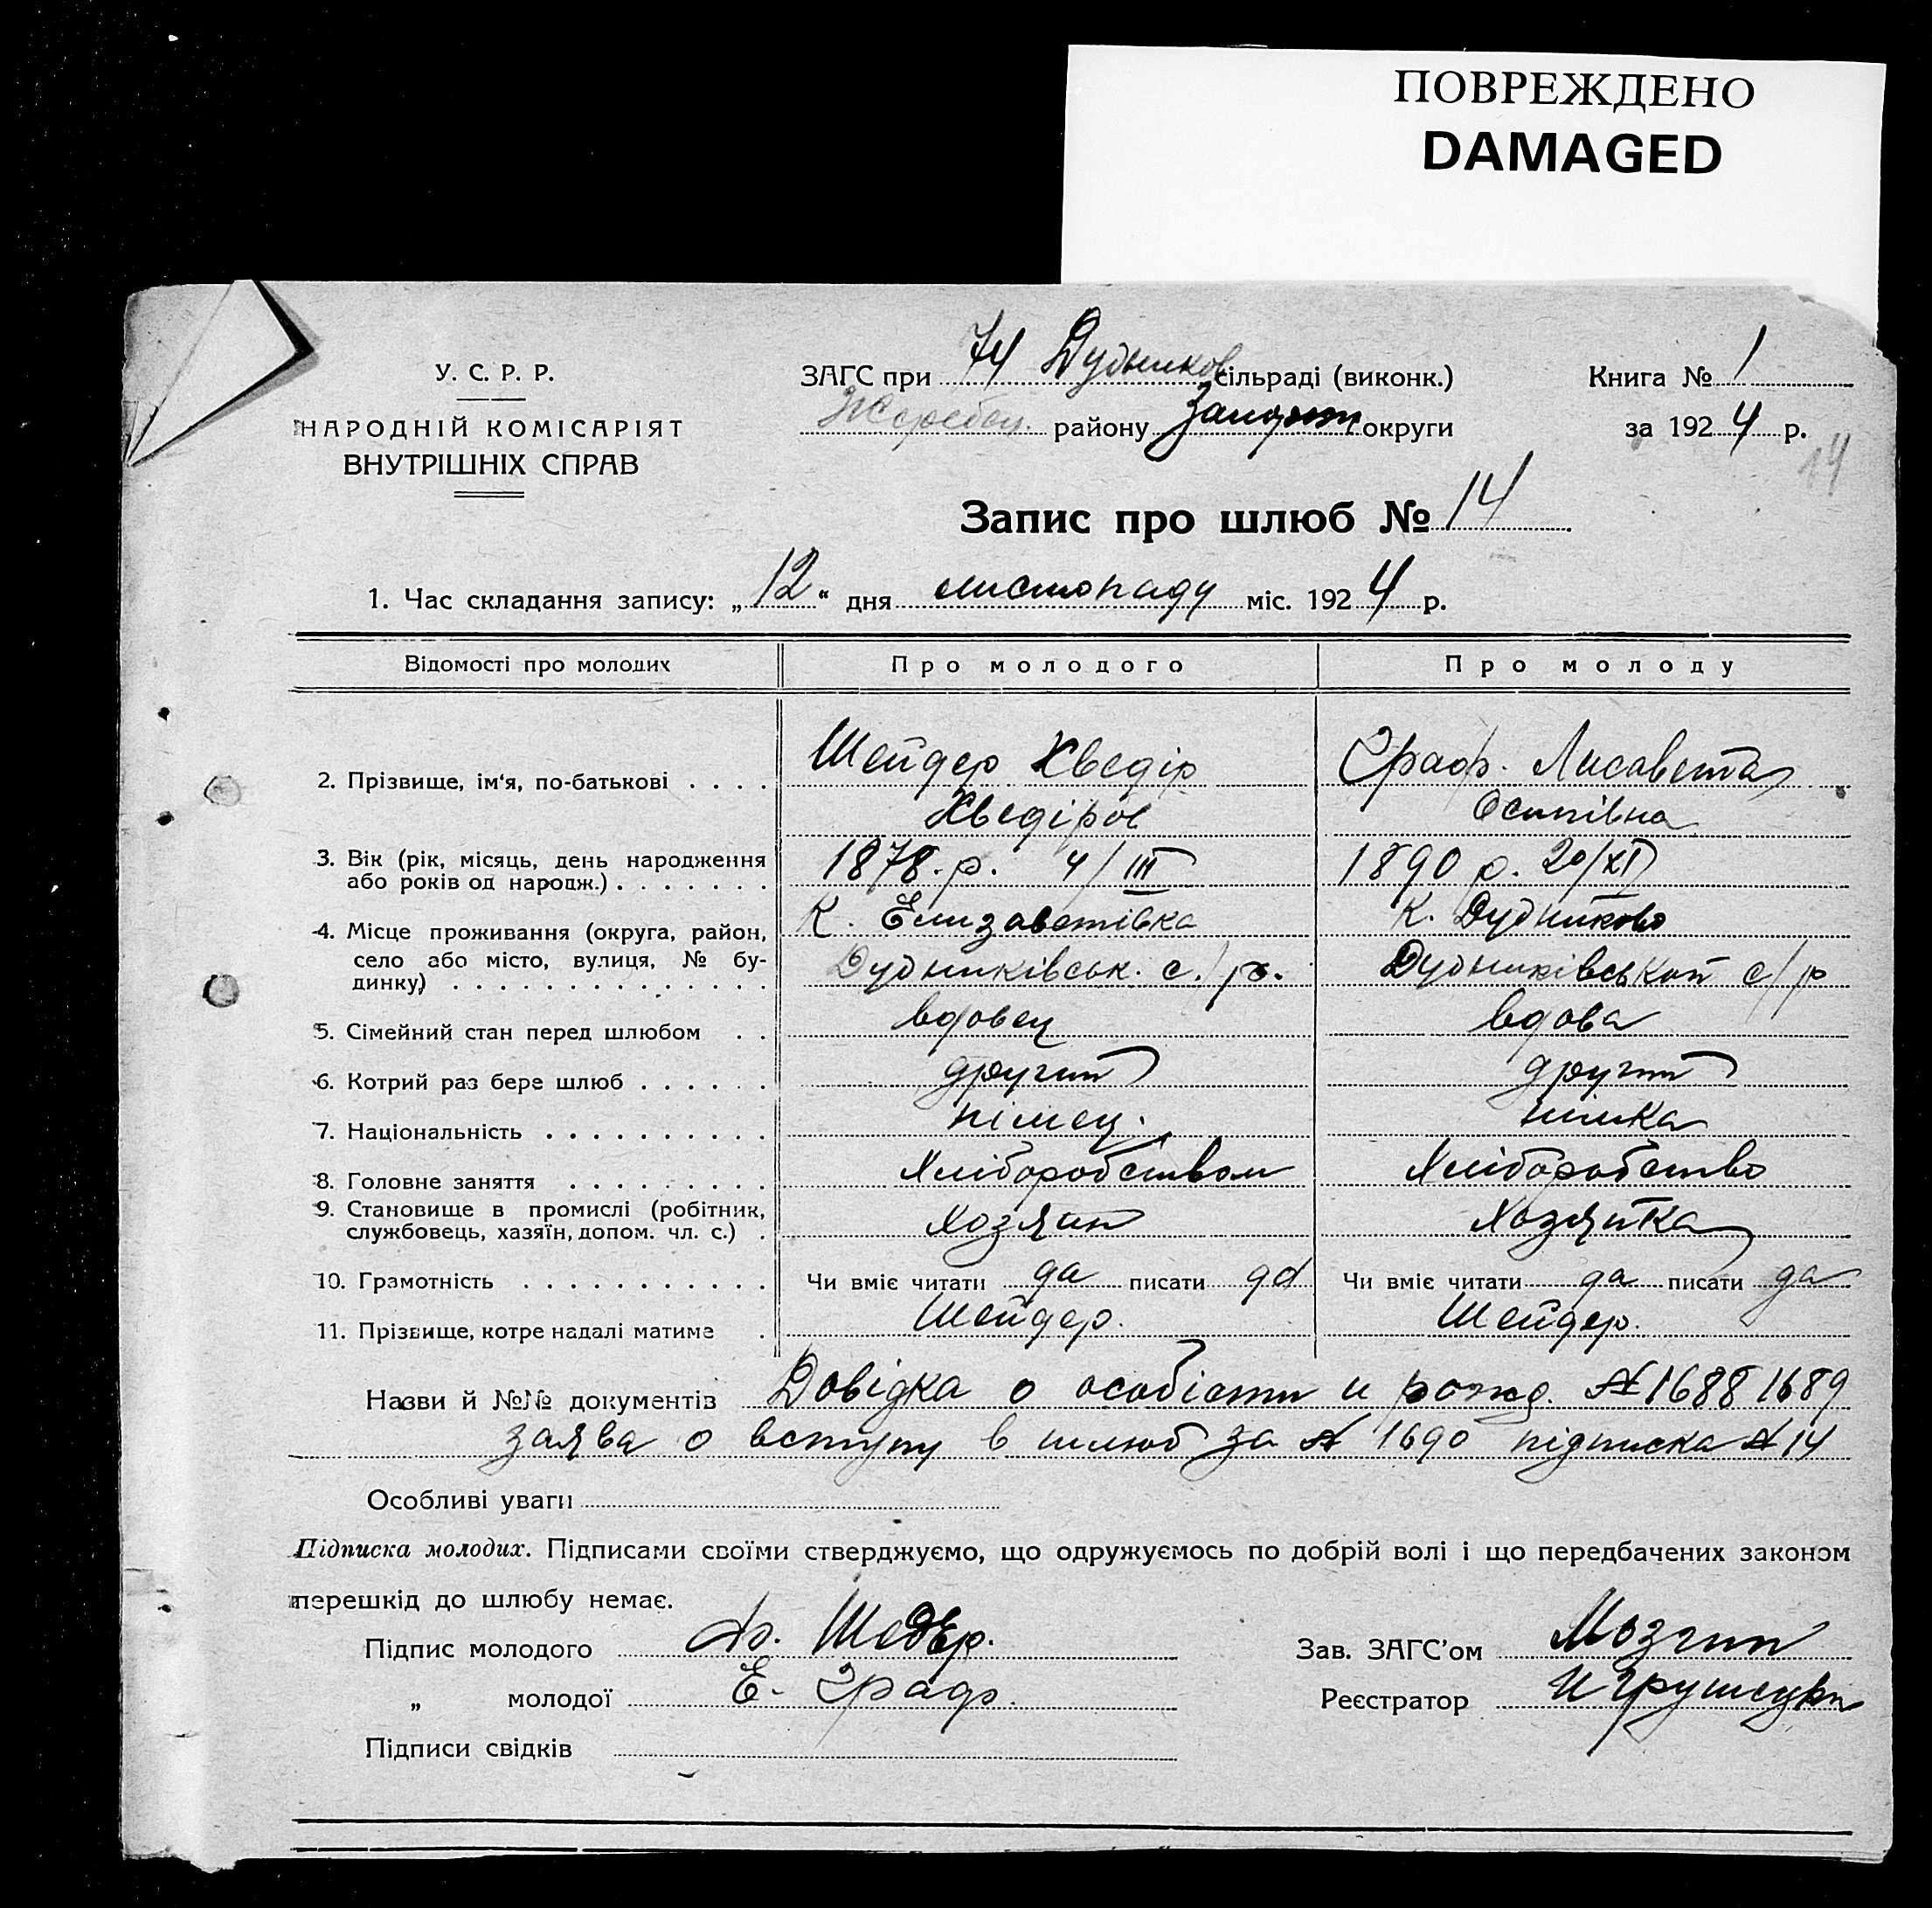 ПОВРЕЖДЕНО
DAMAGED
У. С. Р. Р.
НАРОДНІЙ КОМІСАРІЯТ
ВНУТРІШНІХ СПРАВ
ЗАГС при 74 Дудников сільраді (виконк.)
Жеребец. району Запорож округи
Книга № 1
за 1924 р.
14
Запис про шлюб № 14
1. Час складання запису: „12“ дня листопаду міс. 1924 р.
Відомості про молодих Про молодого Про молоду
2. Прізвище, ім'я, по-батькові . . . . Шейдер Хведір Граф. Лисавета
Хведіров Осипівна
3. Вік (рік, місяць, день народження 1878. р. 4/III 1890 р. 20/XI
або років од народж.) . . . . . . .
4. Місце проживання (округа, район, К. Елизаветівка К. Дудниково
село або місто, вулиця, № бу- Дудниківськ. с./р. Дудниківської с/р
динку) . . . . . . . . . . . . . .
5. Сімейний стан перед шлюбом . . вдовец вдова
6. Котрий раз бере шлюб . . . . . . другий другий
7. Національність . . . . . . . . . . німец. німка
8. Головне заняття . . . . . . . . . Хліборобством Хліборобство
9. Становище в промислі (робітник, Хозяин Хозяйка
службовець, хазяїн, допом. чл. с.) .
10. Грамотність . . . . . . . . . . . Чи вміє читати да писати да Чи вміє читати да писати да
11. Прізвище, котре надалі матиме . Шейдер. Шейдер.
Назви й №№ документів Довідка о особісти и рожд. № 1688 1689
заява о вступу в шлюб за № 1690 підписка № 14
Особливі уваги
Підписка молодих. Підписами своїми стверджуємо, що одружуємось по добрій волі і що передбачених законом
перешкід до шлюбу немає.
Підпис молодого Зав. ЗАГС'ом
„ молодої Е. Граф. Реєстратор
Підписи свідків